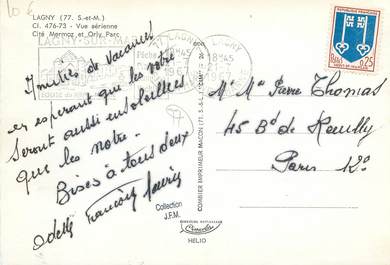 10 €
LAGNY (77. S.-et-M.)
Cl. 476-73 - Vue aérienne
Cité Mermoz et Orly Parc
LAGNY
18H45
Amitiés de Vacances
en esperant que les votre
seront aussi ensoleillées
que les notre.
Bises à tous deux
Odette François
77
Collection
J.F.M.
COMBIER IMPRIMEUR MACON (77. S.-&-L.) "CIM"
HELIO
REPUBLIQUE FRANÇAISE
0,25
Mr Mme Pierre Thomas
45 Bd de Reuilly
Paris 12e